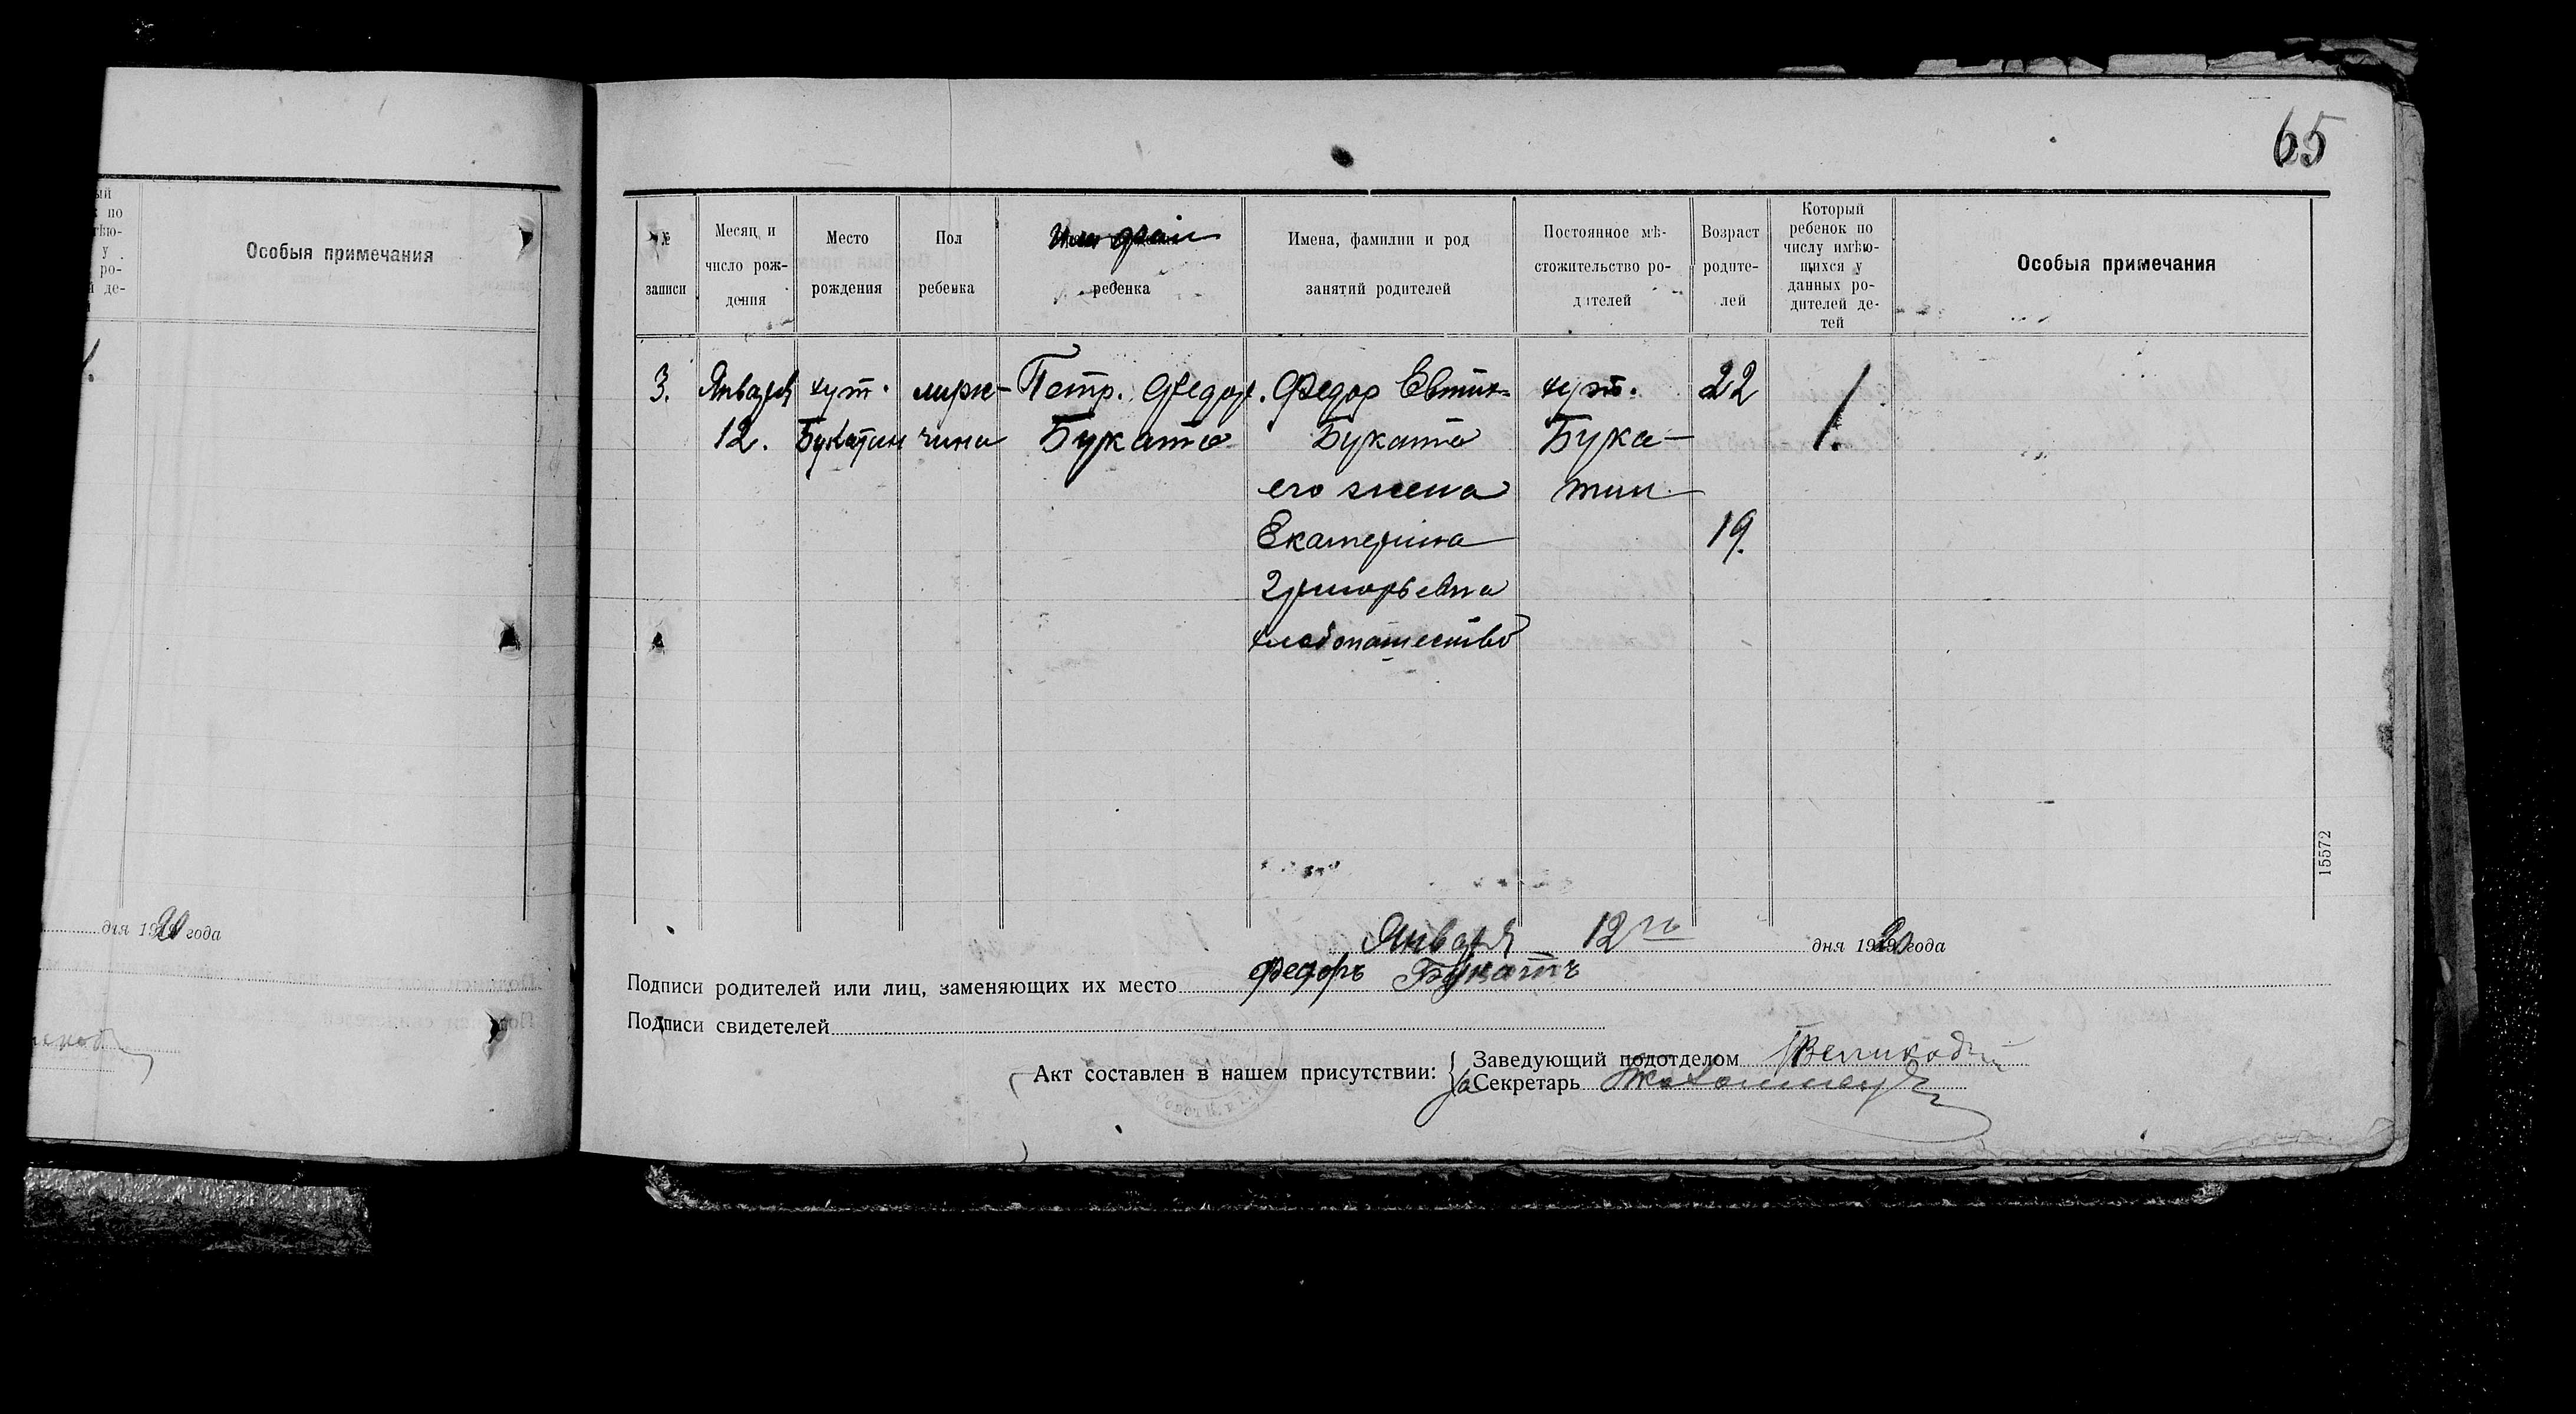 65
ый
по
ѣю-
у
ро-
де-
Особыя примечания
№ записи
Месяц и число рож- дения
Место рождения
Пол ребенка
Имя фам ребенка
Имена, фамилии и род занятий родителей
Постоянное мѣ- стожительство ро- дителей
Возраст родите- лей
Который ребенок по числу имѣю- щихся у данных ро- дителей де- тей
Особыя примечания
3. Января хут. муж- Петр. Федор. Федор Евтих- хут. 22 1.
12. Букатин чина Буката Буката Бука-
его жена тин
Екатерина 19.
Григорьевна
хлебопашество
15572
дня 1920 года
Января 12го дня 1920 года
Подписи родителей или лиц, заменяющих их место Федоръ Букатъ
Подписи свидетелей
Акт составлен в нашем присутствии:
Заведующий подотделом
За Секретарь